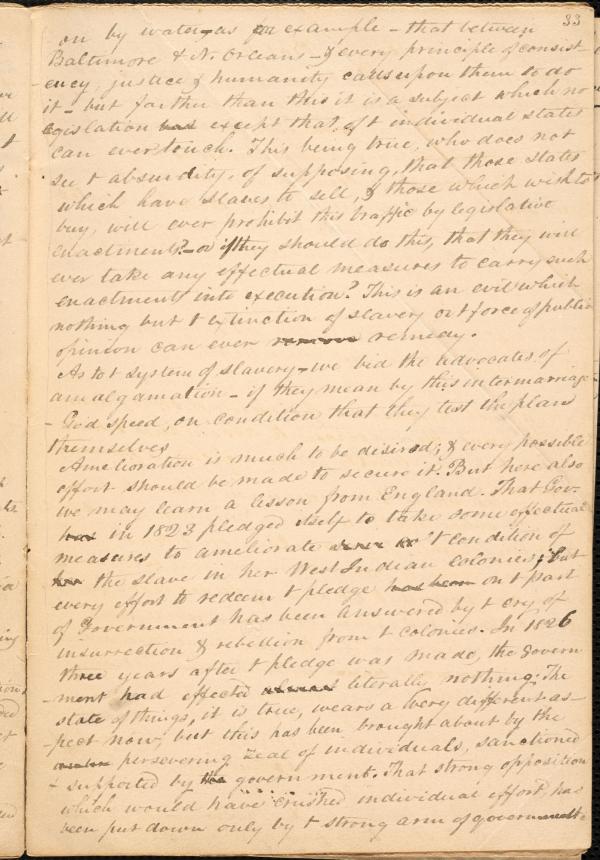 33
on by water, as for example - that between
Baltimore & N. Orleans - & every principle of consist-
ency, justice & humanity calls upon them to do
it - but farther than this it is a subject which no
legislation had except that of t individual states
can ever touch. This being true, who does not
see t absurdity, of supposing, that those states
which have slaves to sell, & those which wish to
buy, will ever prohibit this traffic by legislative
enactments? - or if they should do this, that they will
ever take any effectual measures to carry such
enactments into execution? This is an evil which
nothing but t extinction of slavery or t force of public
opinion can ever remove remedy.
As to t system of slavery - we bid the advocates of
amalgamation - if they mean by this intermarriage
- God speed, on condition that they test the plan
themselves
Amelioration is much to be desired; & every possible
effort should be made to secure it. But here also
we may learn a lesson from England. That Gov.
has in 1823 pledged itself to take some effectual
measures to ameliorate t condition of
the slave in her West Indian colonies; but
every effort to redeem t pledge has been on t part
of Government has been answered by t cry of
insurrection & rebellion from t colonies. In 1826
three years after t pledge was made, the Govern
ment had effected almost literally nothing. The
state of things, it is true, wears a very different as-
pect now, but this has been brought about by the
persevering zeal of individuals, sanctioned
& supported by the government. That strong opposition
which would have crushed individual effort, has
been put down only by t strong arm of government